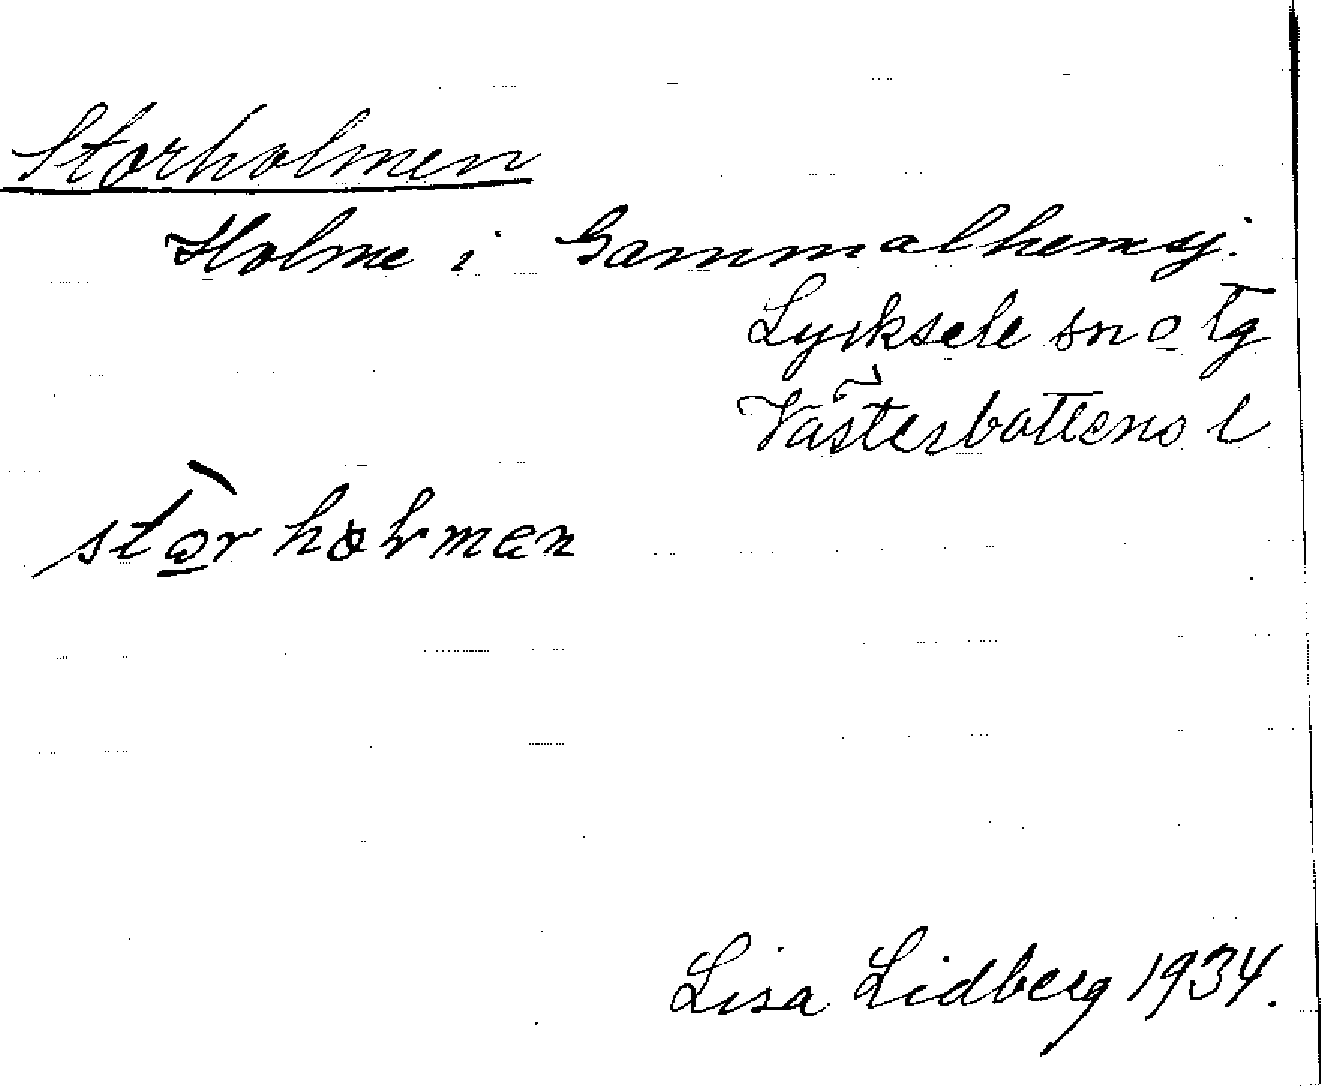 Storholmen
Holme i Gammalhemsj.
Lycksele sn o tg
Västerbottens l
stòrholmen
Lisa Lidberg 1934.